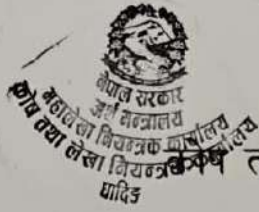 नेपाल सरकार
अर्थ मन्त्रालय
महालेखा नियन्त्रक कार्यालय
कोष तथा लेखा नियन्त्रक कार्यालय
धादिङ